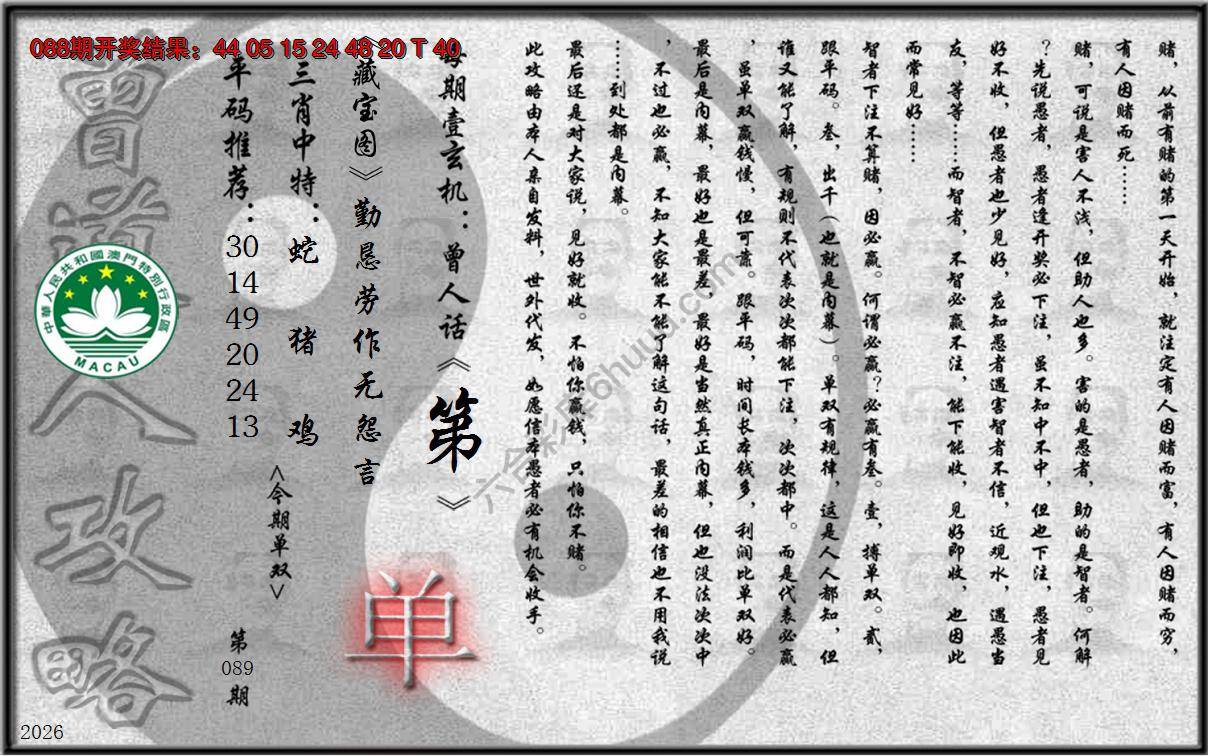 088期开奖结果：44 05 15 24 48 20 T 40
赌，从前有赌的第一天开始，就注定有人因赌而富，有人因赌而穷，
有人因赌而死……
赌，可说是害人不浅，但助人也多。害的是愚者，助的是智者。何解
？先说愚者，愚者逢开奖必下注，虽不知中不中，但也下注，愚者见
好不收，但愚者也少见好，应知愚者遇害智者不信，近观水，遇愚当
友，等等……而智者，不智必赢不注，能下能收，见好即收，也因此
而常见好……
智者下注不算赌，因必赢。何谓必赢？必赢有叁。壹，搏单双。贰，
跟平码。叁，出千（也就是内幕）。单双有规律，这是人人都知，但
谁又能了解，有规则不代表次次都能下注，次次都中。而是代表必赢
，虽单双赢钱慢，但可靠。跟平码，时间长本钱多，利润比单双好。
最后是内幕，最好也是最差，最好是当然真正内幕，但也没法次次中
，不过也必赢，不知大家能不能了解这句话，最差的相信也不用我说
……到处都是内幕。
最后还是对大家说，见好就收。不怕你赢钱，只怕你不赌。
此攻略由本人亲自发料，世外代发，如愿信本愚者必有机会收手。
每期壹玄机：曾人话《第》
《藏宝图》勤恳劳作无怨言
三肖中特：蛇 猪 鸡
平码推荐：30 14 49 20 24 13
<今期单双>
单
第089期
曾道人攻略
中華人民共和國澳門特別行政區
MACAU
六合彩库6huuu.com
2026